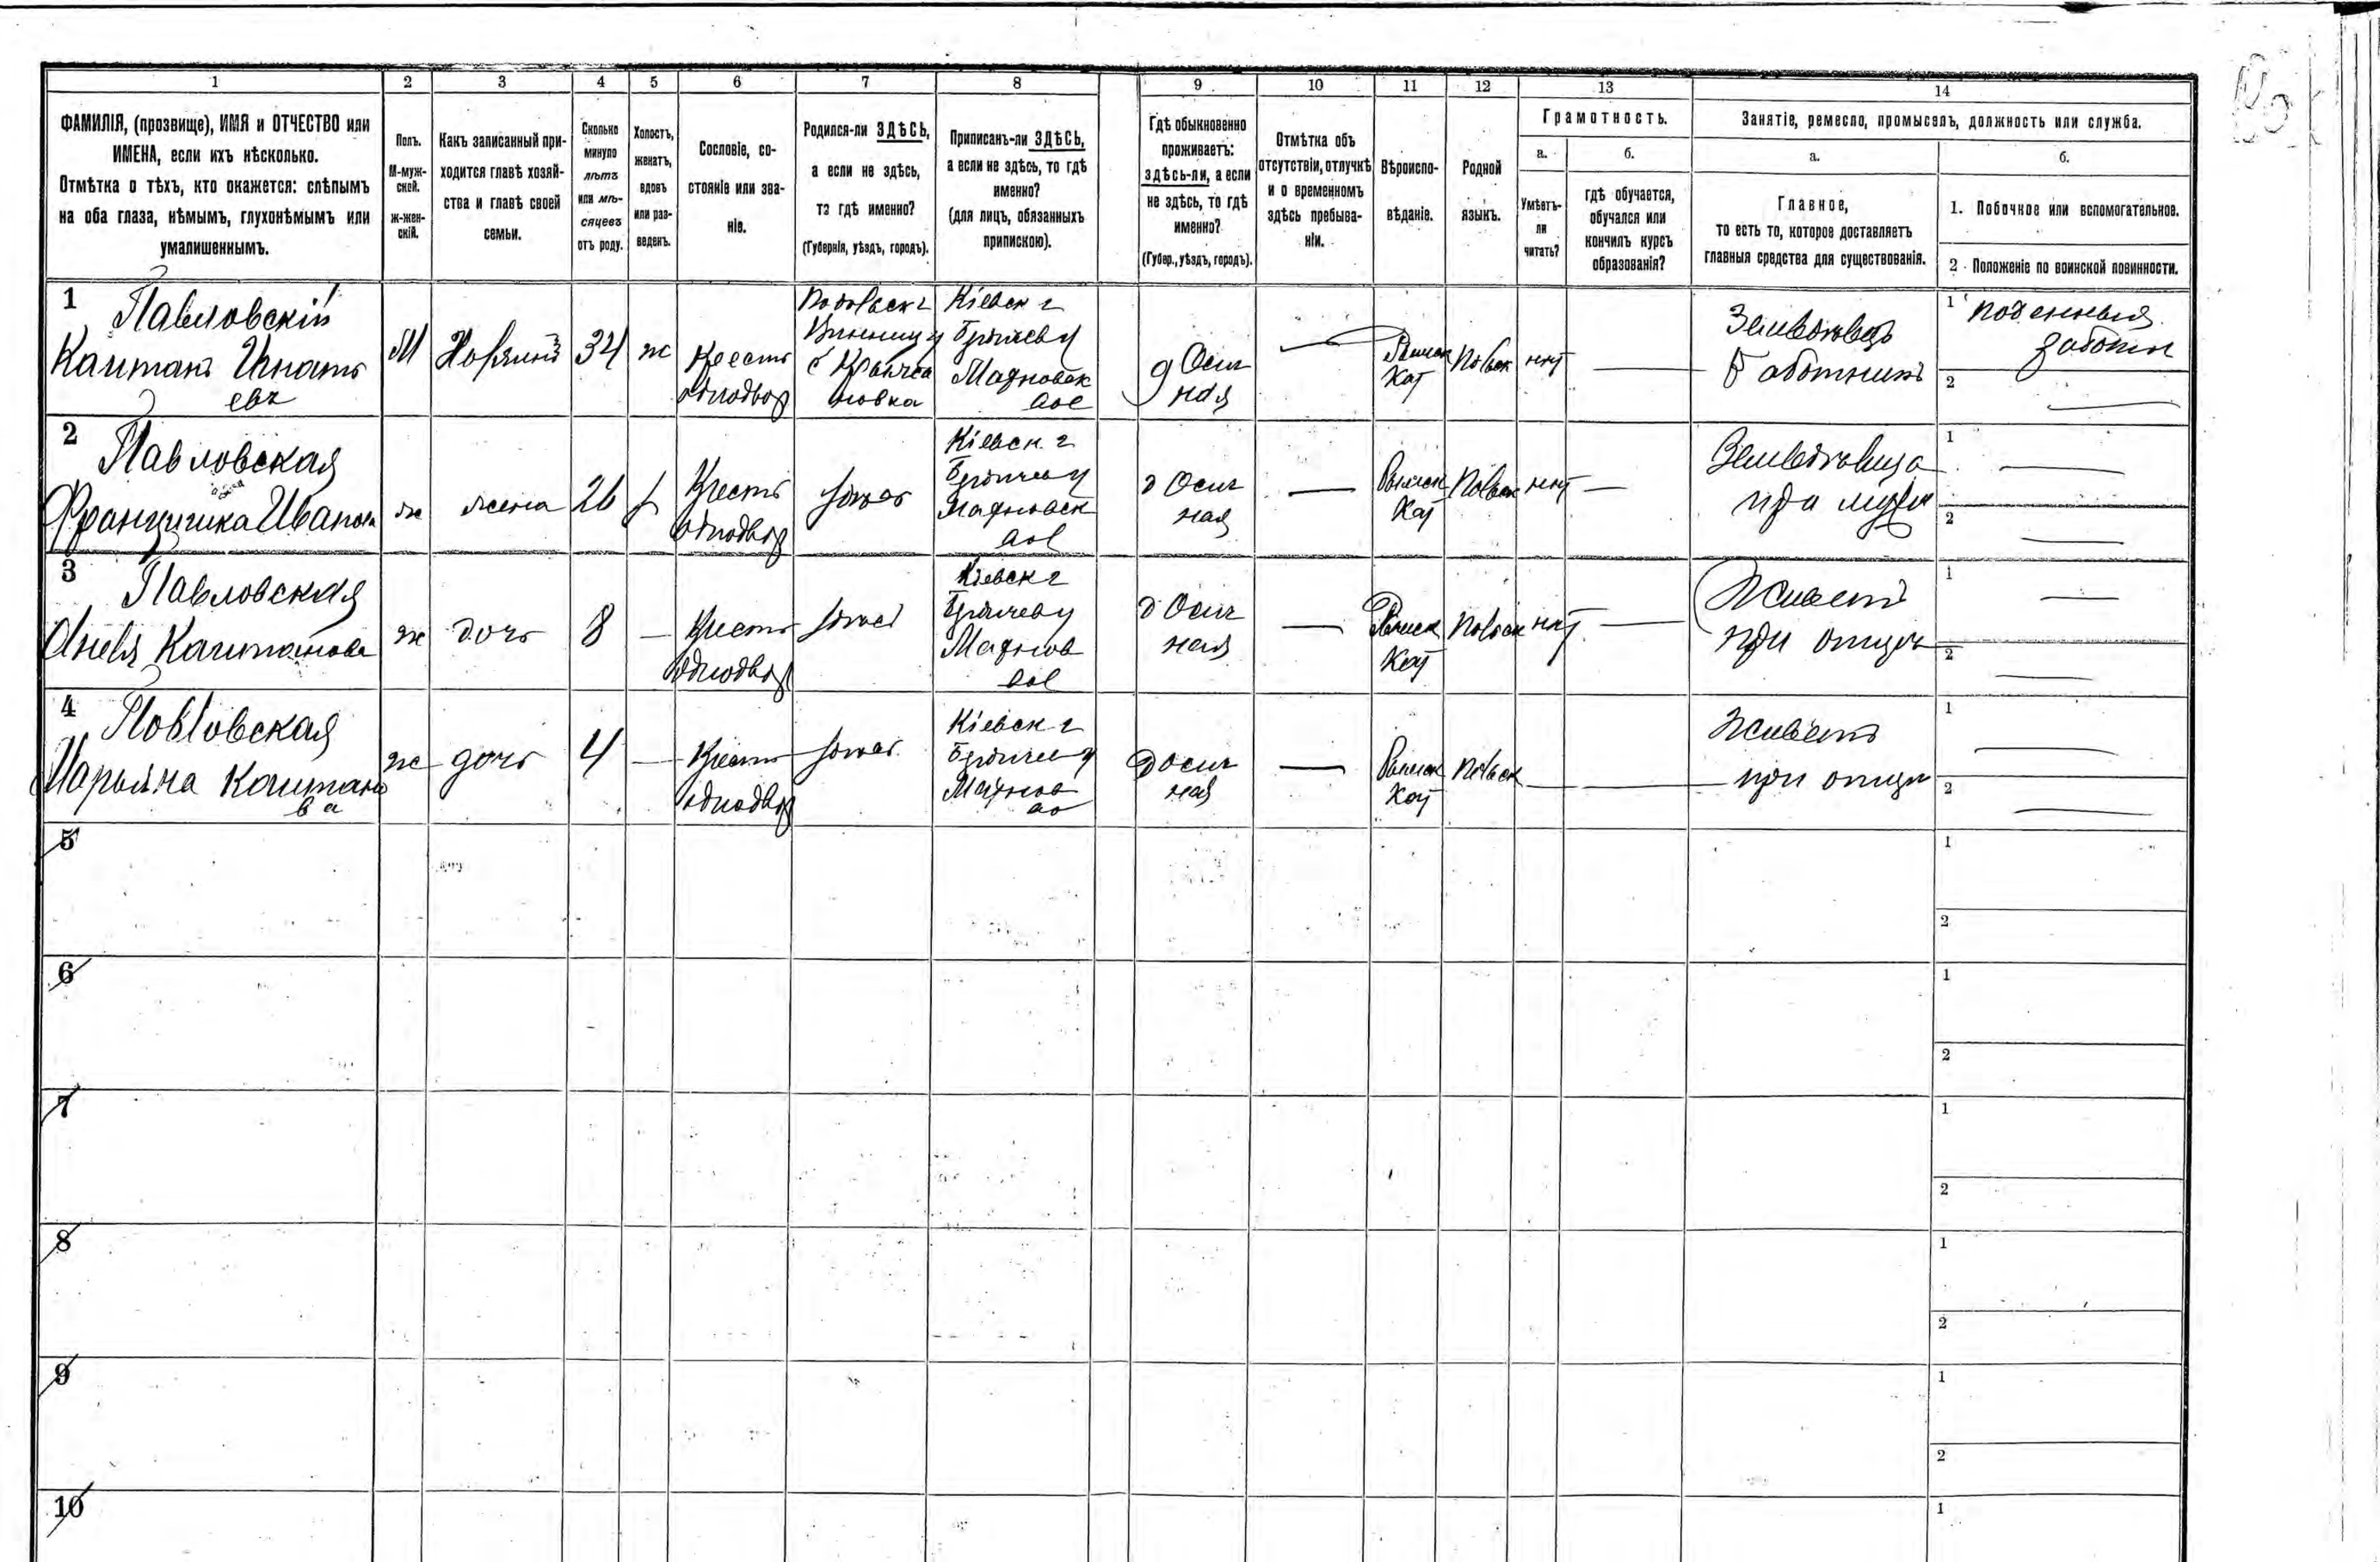 1 2 3 4 5 6 7 8 9 10 11 12 13 14
ФАМИЛІЯ, (прозвище), ИМЯ и ОТЧЕСТВО или
ИМЕНА, если ихъ нѣсколько.
Отмѣтка о тѣхъ, кто окажется: слѣпымъ
на оба глаза, нѣмымъ, глухонѣмымъ или
умалишеннымъ.
Полъ.
М-муж-
ской.
ж-жен-
скій.
Какъ записанный при-
ходится главѣ хозяй-
ства и главѣ своей
семьи.
Сколько
минуло
лѣтъ
или мѣ-
сяцевъ
отъ роду.
Холостъ,
женатъ,
вдовъ
или раз-
веденъ.
Сословіе, со-
стояніе или зва-
ніе.
Родился-ли ЗДѢСЬ,
а если не здѣсь,
то гдѣ именно?
(Губернія, уѣздъ, городъ).
Приписанъ-ли ЗДѢСЬ,
а если не здѣсь, то гдѣ
именно?
(для лицъ, обязанныхъ
припискою).
Гдѣ обыкновенно
проживаетъ:
здѣсь-ли, а если
не здѣсь, то гдѣ
именно?
(Губер., уѣздъ, городъ).
Отмѣтка объ
отсутствіи, отлучкѣ
и о временномъ
здѣсь пребыва-
ніи.
Вѣроиспо-
вѣданіе.
Родной
языкъ.
Грамотность.
а.
Умѣетъ-
ли
читать?
б.
гдѣ обучается,
обучался или
кончилъ курсъ
образованія?
Занятіе, ремесло, промыселъ, должность или служба.
а.
Главное,
то есть то, которое доставляетъ
главныя средства для существованія.
б.
1. Побочное или вспомогательное.
2. Положеніе по воинской повинности.
1 Павловскій
Каитанъ Игнать
евъ
М
34
ж
Крестъ
однодвор
Подольск г
Винниц у
Кіевск г
Бердичев у
Махновск
вол
д Осич
ная
Римск
Кат
Польск
нѣт
Земледѣлецъ
Работникъ
1 Поденныя
работы
2
2 Павловская
Францишка Иванова
ж
жена
26
Крестъ
однодвор
Кіевск г
Бердичев у
Махновск
вол
д Осич
ная
Римск
Кат
Польск
нѣт
при муж
1
2
3 Павловская
Анеля Каитанова
ж
дочь
8
Крестъ
однодвор
Кіевск г
Бердичев у
Махнов
вол
д Осич
ная
Римск
Кат
Польск
нѣт
Живетъ
при отцѣ
1
2
4 Павловская
Марьяна Каитано
ва
ж
дочь
4
Крестъ
однодвор
Кіевск г
Бердичев у
Махнов
во
д Осич
ная
Римск
Кат
Польск
Живетъ
при отцѣ
1
2
5
1
2
6
1
2
7
1
2
8
1
2
9
1
2
10
1